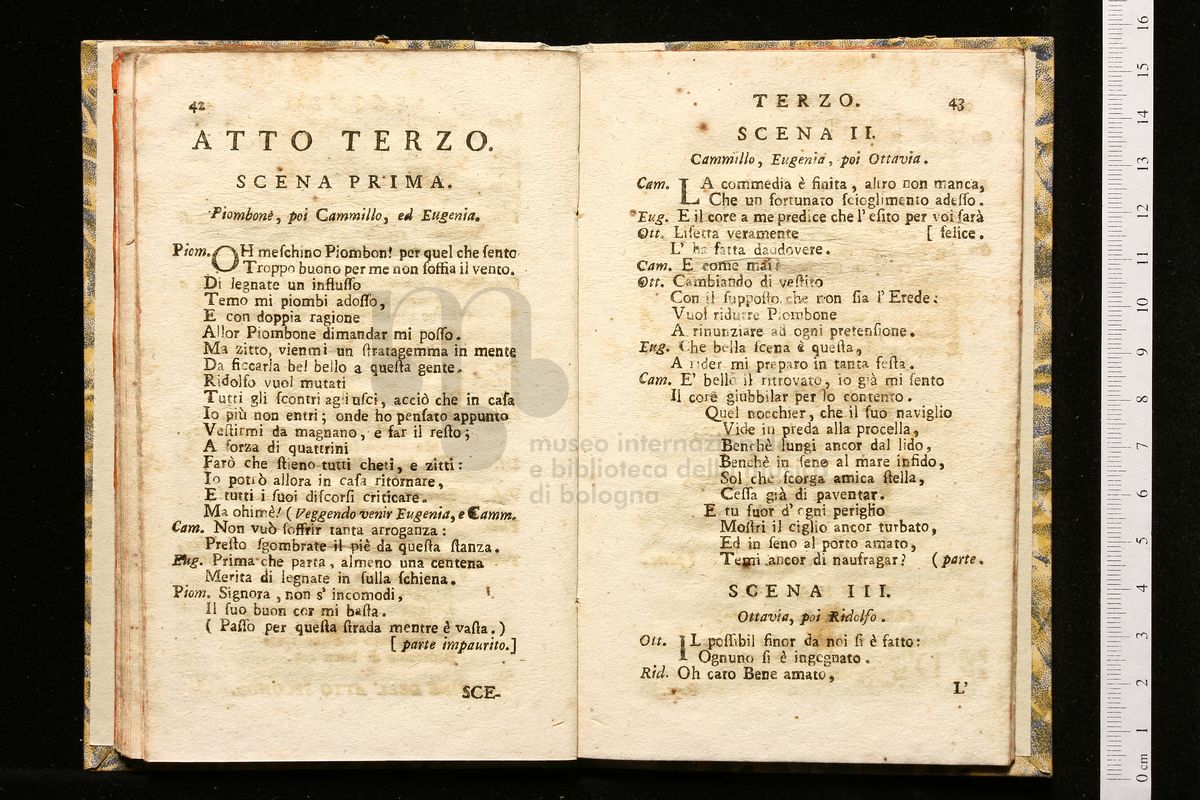 42
ATTO TERZO.
SCENA PRIMA.
Piombone, poi Cammillo, ed Eugenia.
Piom. OH meſchino Piombon! per quel che ſento
Troppo buono per me non ſoffia il vento.
Di legnate un influſſo
Temo mi piombi adoſſo,
E con doppia ragione
Allor Piombone dimandar mi poſſo.
Ma zitto, vienmi un ſtratagemma in mente
Da ficcarla bel bello a queſta gente.
Ridolfo vuol mutati
Tutti gli ſcontri agiuſci, acciò che in caſa
Io più non entri; onde ho penſato appunto
Veſtirmi da magnano, e far il reſto;
A forza di quattrini
Farò che ſtieno tutti cheti, e zitti:
Io potrò allora in caſa ritornare,
E tutti i ſuoi diſcorſi criticare.
Ma ohimè! (Veggendo venir Eugenia, e Camm.
Cam. Non vuò ſoffrir tanta arroganza:
Preſto ſgombrate il piè da queſta ſtanza.
Eug. Prima che parta, almeno una centena
Merita di legnate in ſulla ſchiena.
Piom. Signora, non s' incomodi,
Il ſuo buon cor mi baſta.
( Paſſo per queſta ſtrada mentre è vaſta.)
[ parte impaurito.]
SCE-
TERZO. 43
SCENA II.
Cammillo, Eugenia, poi Ottavia.
Cam. LA commedia è finita, altro non manca,
Che un fortunato ſcioglimento adeſſo.
Eug. E il core a me predice che l' eſito per voi ſarà
Ott. Liſetta veramente [ felice.
L' ha fatta daudovere.
Cam. E come mai?
Ott. Cambiando di veſtito
Con il ſuppoſto che non ſia l' Erede:
Vuol ridurre Piombone
A rinunziare ad ogni pretenſione.
Eug. Che bella ſcena è queſta,
A rider mi preparo in tanta feſta.
Cam. E' bello il ritrovato, io già mi ſento
Il core giubbilar per lo contento.
Quel nocchier, che il ſuo naviglio
Vide in preda alla procella,
Benchè lungi ancor dal lido,
Benchè in ſeno al mare infido,
Sol che ſcorga amica ſtella,
Ceſſa già di paventar.
E tu fuor d' ogni periglio
Moſtri il ciglio ancor turbato,
Ed in ſeno al porto amato,
Temi ancor di naufragar? (parte.
SCENA III.
Ottavia, poi Ridolfo.
Ott. IL poſſibil finor da noi ſi è fatto:
Ognuno ſi è ingegnato.
Rid. Oh caro Bene amato,
L'
museo internazionale
e biblioteca della musica
di bologna
0 cm 1 2 3 4 5 6 7 8 9 10 11 12 13 14 15 16